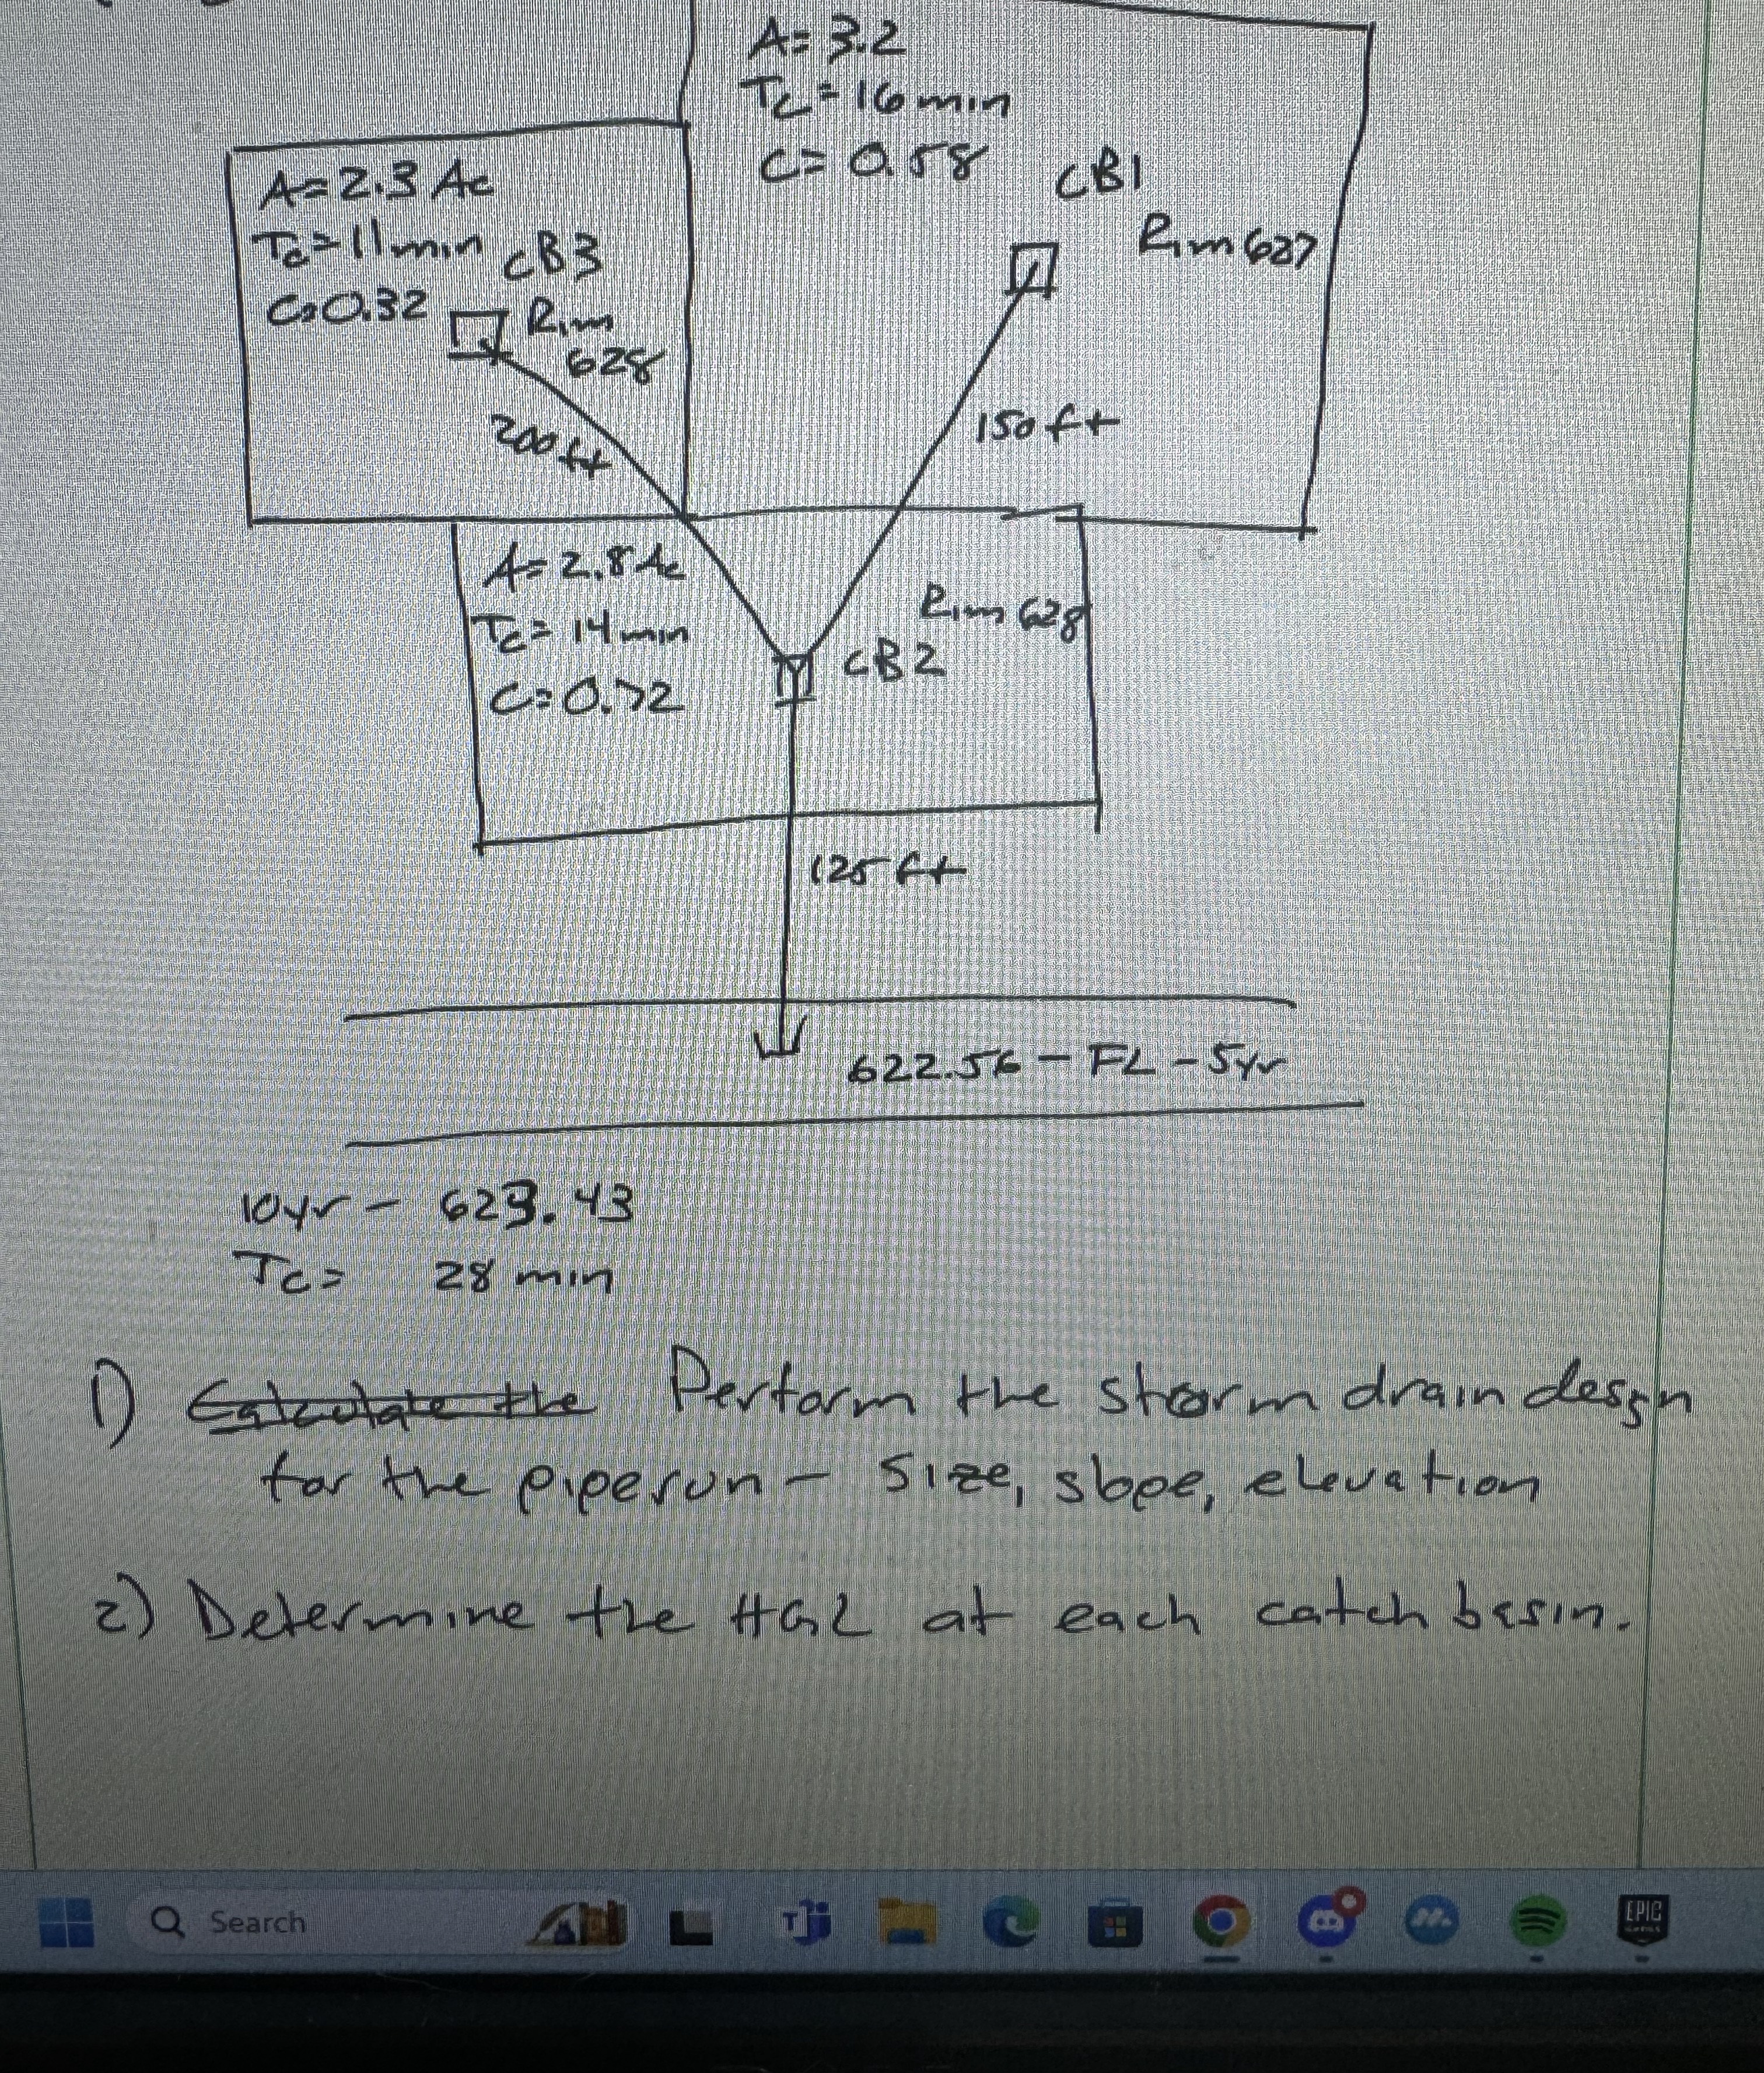 A= 3.2
Tc = 16 min
C= 0.58
CB1
Rim 627
A= 2.3 Ac
Tc = 11 min
CB3
C= 0.32
Rim
628
200 ft
150 ft
A= 2.8 Ac
Tc = 14 min
C= 0.72
Rim 628
CB2
125 ft
622.56 - FL - 5yr
10yr - 623.43
Tc = 28 min
1) Calculate the Perform the storm drain desgn
for the pipe run - Size, slope, elevation
2) Determine the HGL at each catch basin.
Search
EPIC